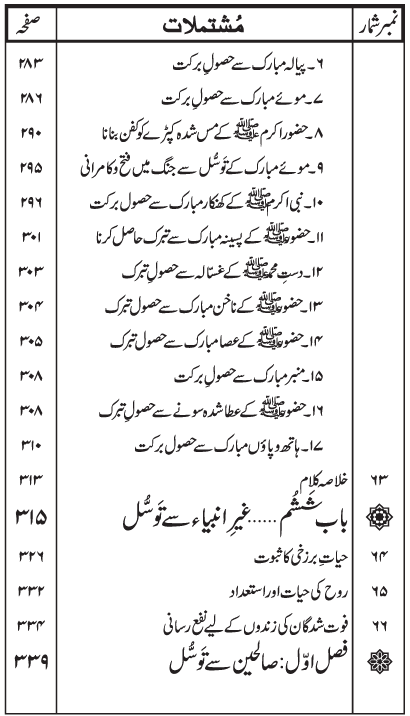 نمبر شمار مُشتملات صفحہ
۶۔ پیالہ مبارک سے حصولِ برکت ۲۸۳
۷۔ موئے مبارک سے حصولِ برکت ۲۸۶
۸۔ حضور اکرم ﷺ کے مس شدہ کپڑے کو کفن بنانا ۲۹۰
۹۔ موئے مبارک کے توَسُّل سے جنگ میں فتح و کامرانی ۲۹۵
۱۰۔ نبی اکرم ﷺ کے کھنکار مبارک سے حصولِ برکت ۲۹۶
۱۱۔ حضور ﷺ کے پسینہ مبارک سے تبرک حاصل کرنا ۳۰۱
۱۲۔ دستِ محمد ﷺ کے غسّالہ سے حصولِ تبرک ۳۰۳
۱۳۔ حضور ﷺ کے ناخن مبارک سے حصولِ تبرک ۳۰۴
۱۴۔ حضور ﷺ کے عصا مبارک سے حصولِ تبرک ۳۰۵
۱۵۔ منبر مبارک سے حصولِ برکت ۳۰۸
۱۶۔ حضور ﷺ کے عطا شدہ سونے سے حصولِ تبرک ۳۰۸
۱۷۔ ہاتھ و پاؤں مبارک سے حصولِ برکت ۳۱۰
۶۳ خلاصہ کلام ۳۱۳
باب ششُم ...... غیرِ انبیاء سے توَسُّل ۳۱۵
۶۴ حیاتِ برزخی کا ثبوت ۳۲۶
۶۵ روح کی حیات اور استعداد ۳۳۲
۶۶ فوت شدگان کی زندوں کے لیے نفع رسانی ۳۳۴
فصل اوّل : صالحین سے توَسُّل ۳۳۹